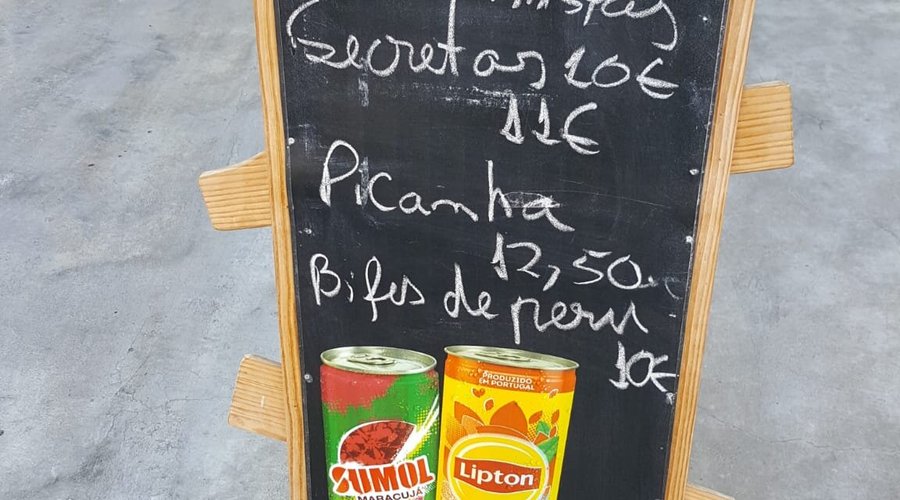 secretas 10€
11€
Picanha
12,50
Bifes de peru
10€
PRODUZIDO
EM PORTUGAL
SUMOL
MARACUJÁ
Lipton